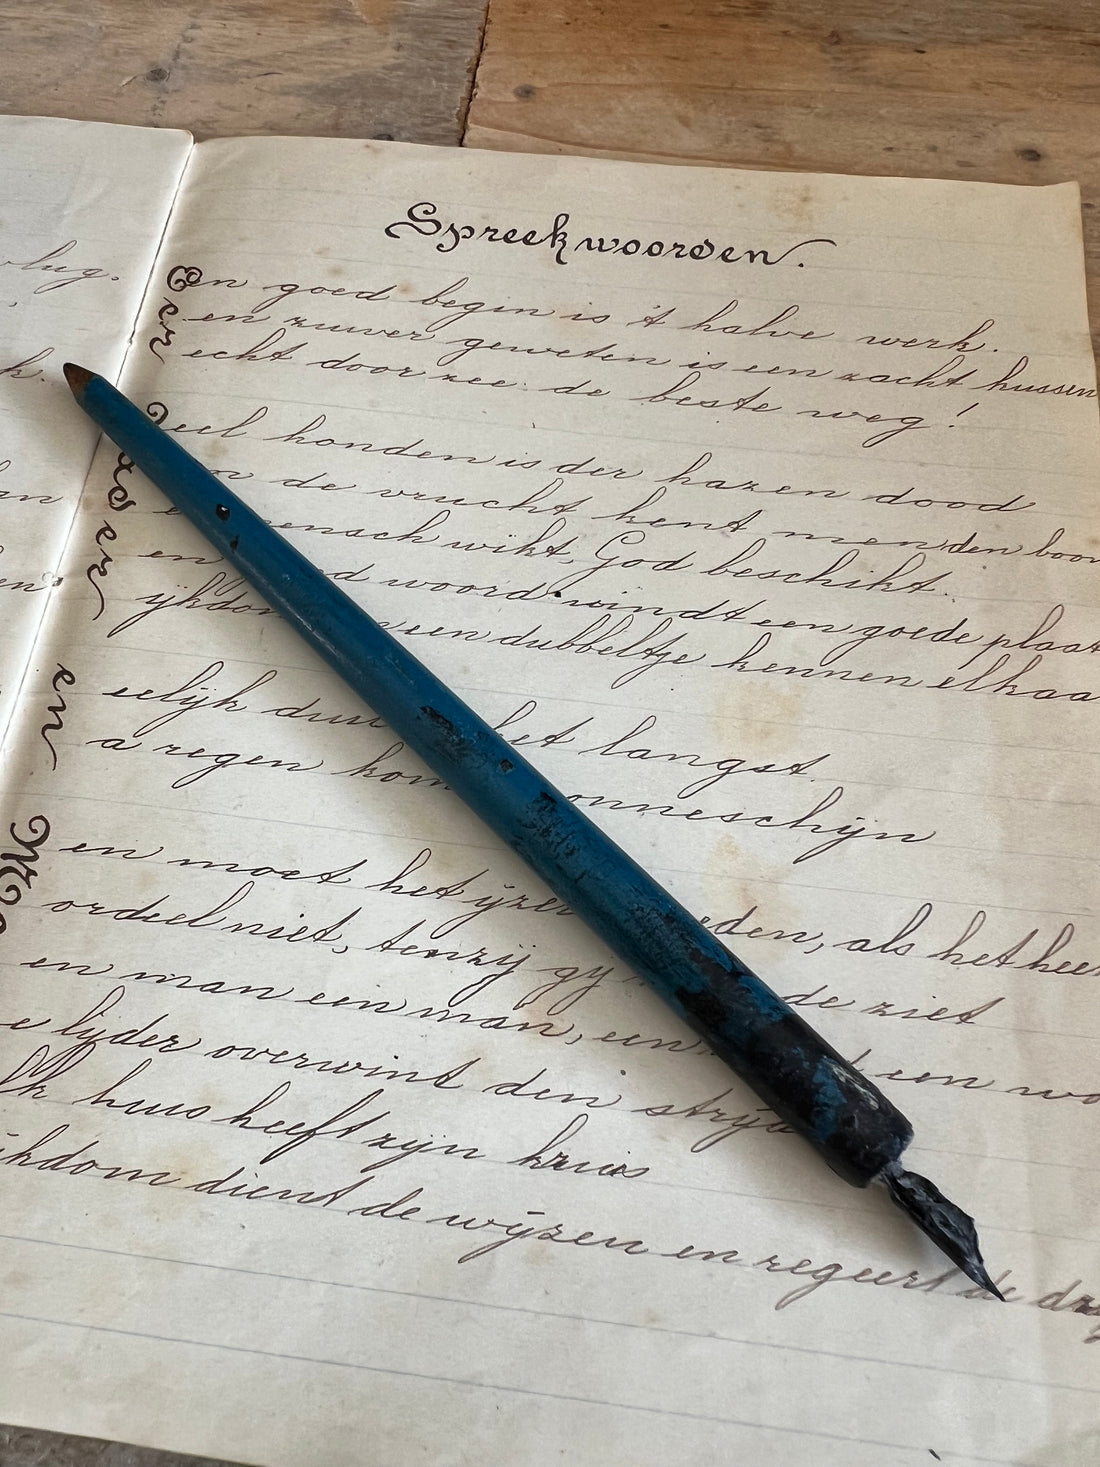 Spreekwoorden.
Een goed begin is 't halve werk.
en zuiver geweten is een zacht kussen
echt door zee: de beste weg!
Veel honden is der hazen dood
de vrucht kent men den boo
mensch wikt, God beschikt.
d woord vindt een goede plaat
ijkdo een dubbeltje kennen elkaa
eelijk duu het langst
a regen kom onneschijn
en moet het ijze eden, als het hee
ordeel niet, tenzij gij de ziet
en man een man, een een wo
e lijder overwint den strijd
lk huis heeft zijn kruis
ijkdom dient de wijzen en regeert de
Eer
Vader
en
vlug.
k.
an
en